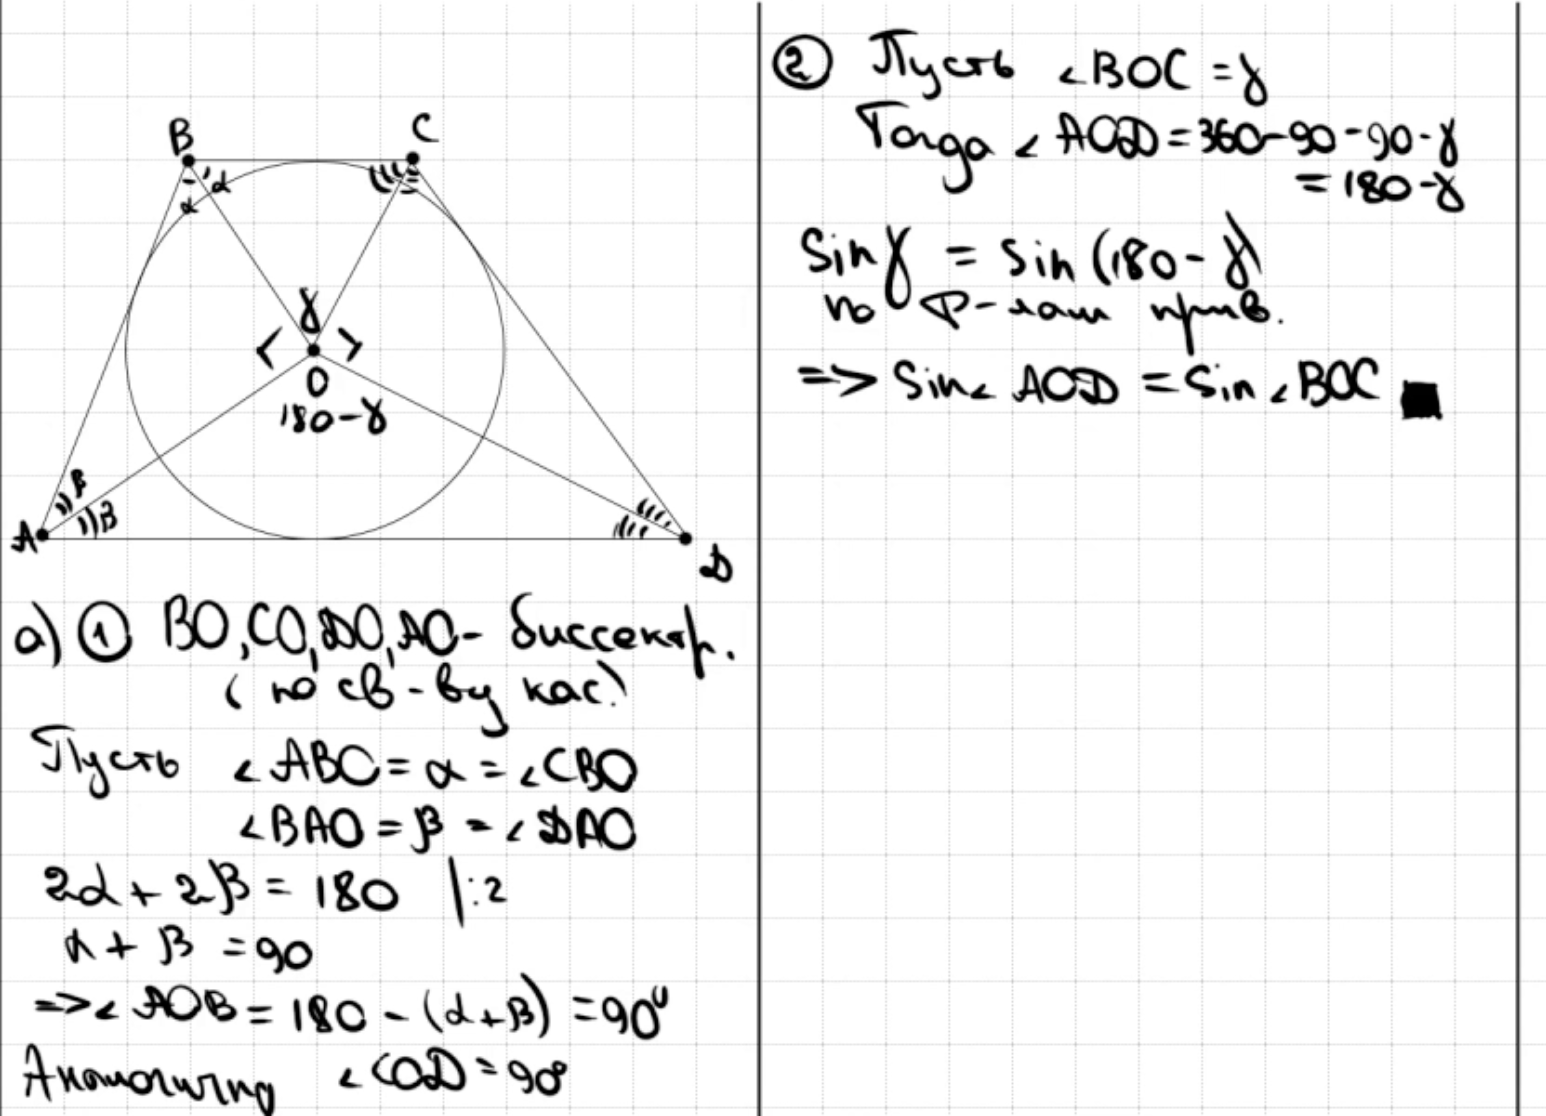 B
C
α
α
γ
O
180-γ
β
β
A
D
а) ① BO, CO, DO, AO - биссектр.
(по св-ву кас.)
Пусть ∠ABO = α = ∠CBO
∠BAO = β = ∠DAO
2α + 2β = 180 |:2
α + β = 90
=> ∠AOB = 180 - (α+β) = 90°
Аналогично ∠COD = 90°
② Пусть ∠BOC = γ
Тогда ∠AOD = 360-90-90-γ
= 180-γ
Sin γ = Sin (180-γ)
по ф-лам прив.
=> Sin∠AOD = Sin∠BOC ■